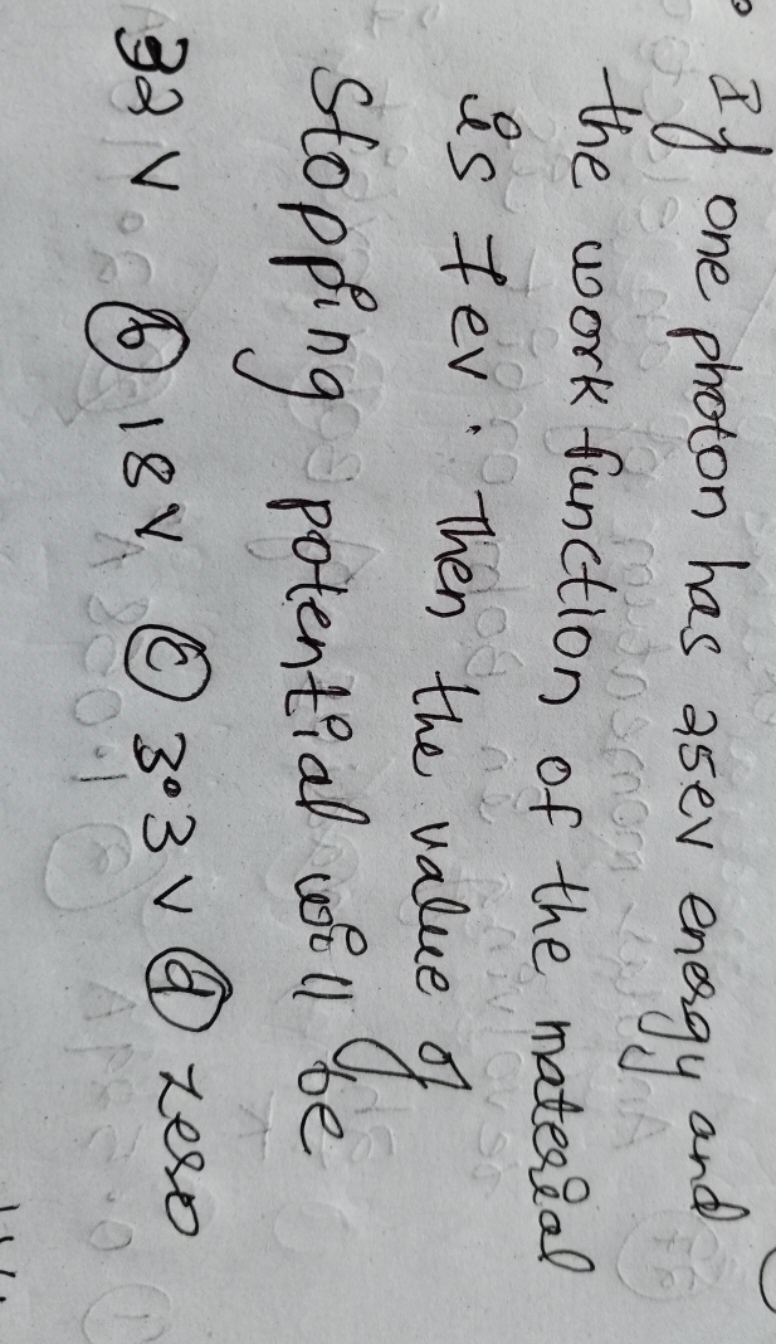 If one photon has 25ev energy and
the work function of the material
is 7ev. Then the value of
Stopping potential will be
32 V (b) 18V (c) 3.3 V (d) zero